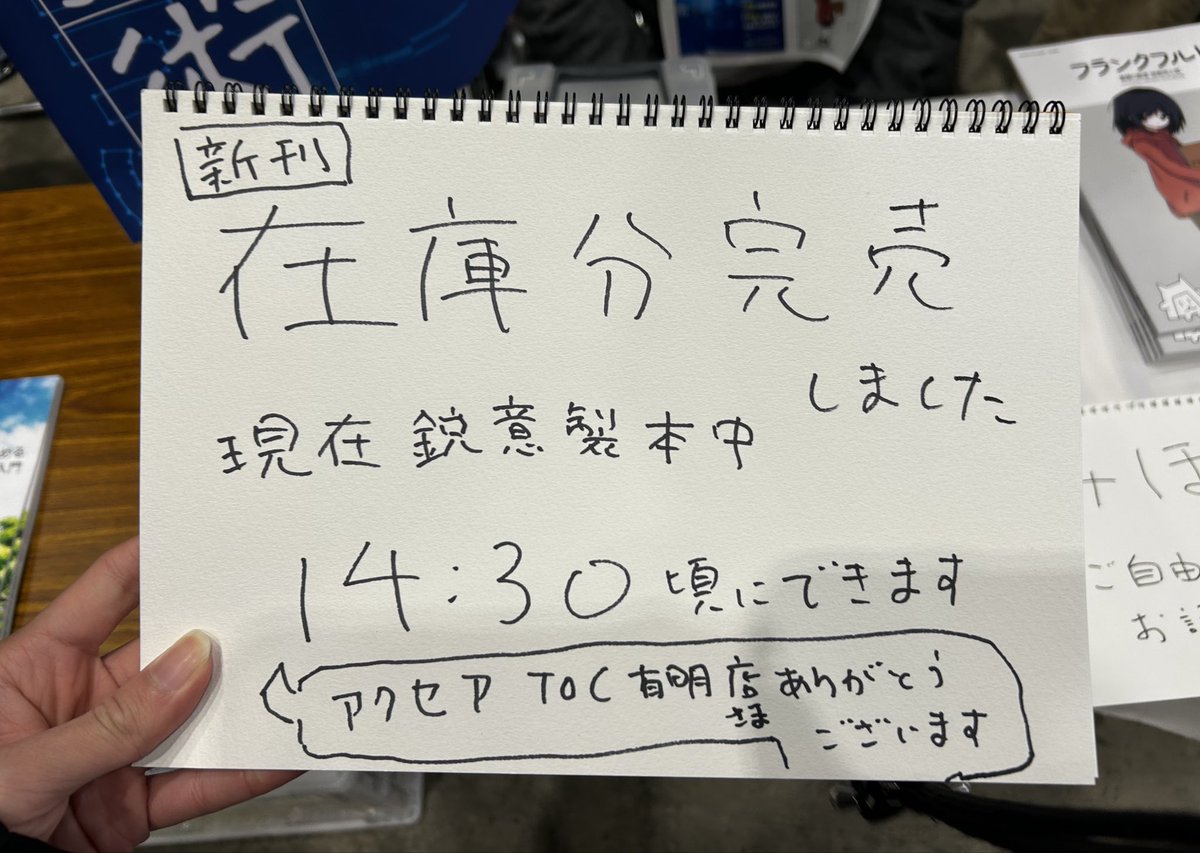 術
フランクフルト
新刊
在庫分完売
しました
現在鋭意製本中
14:30頃にできます
アクセア TOC有明店さま ありがとう
ございます
入門
ご自由